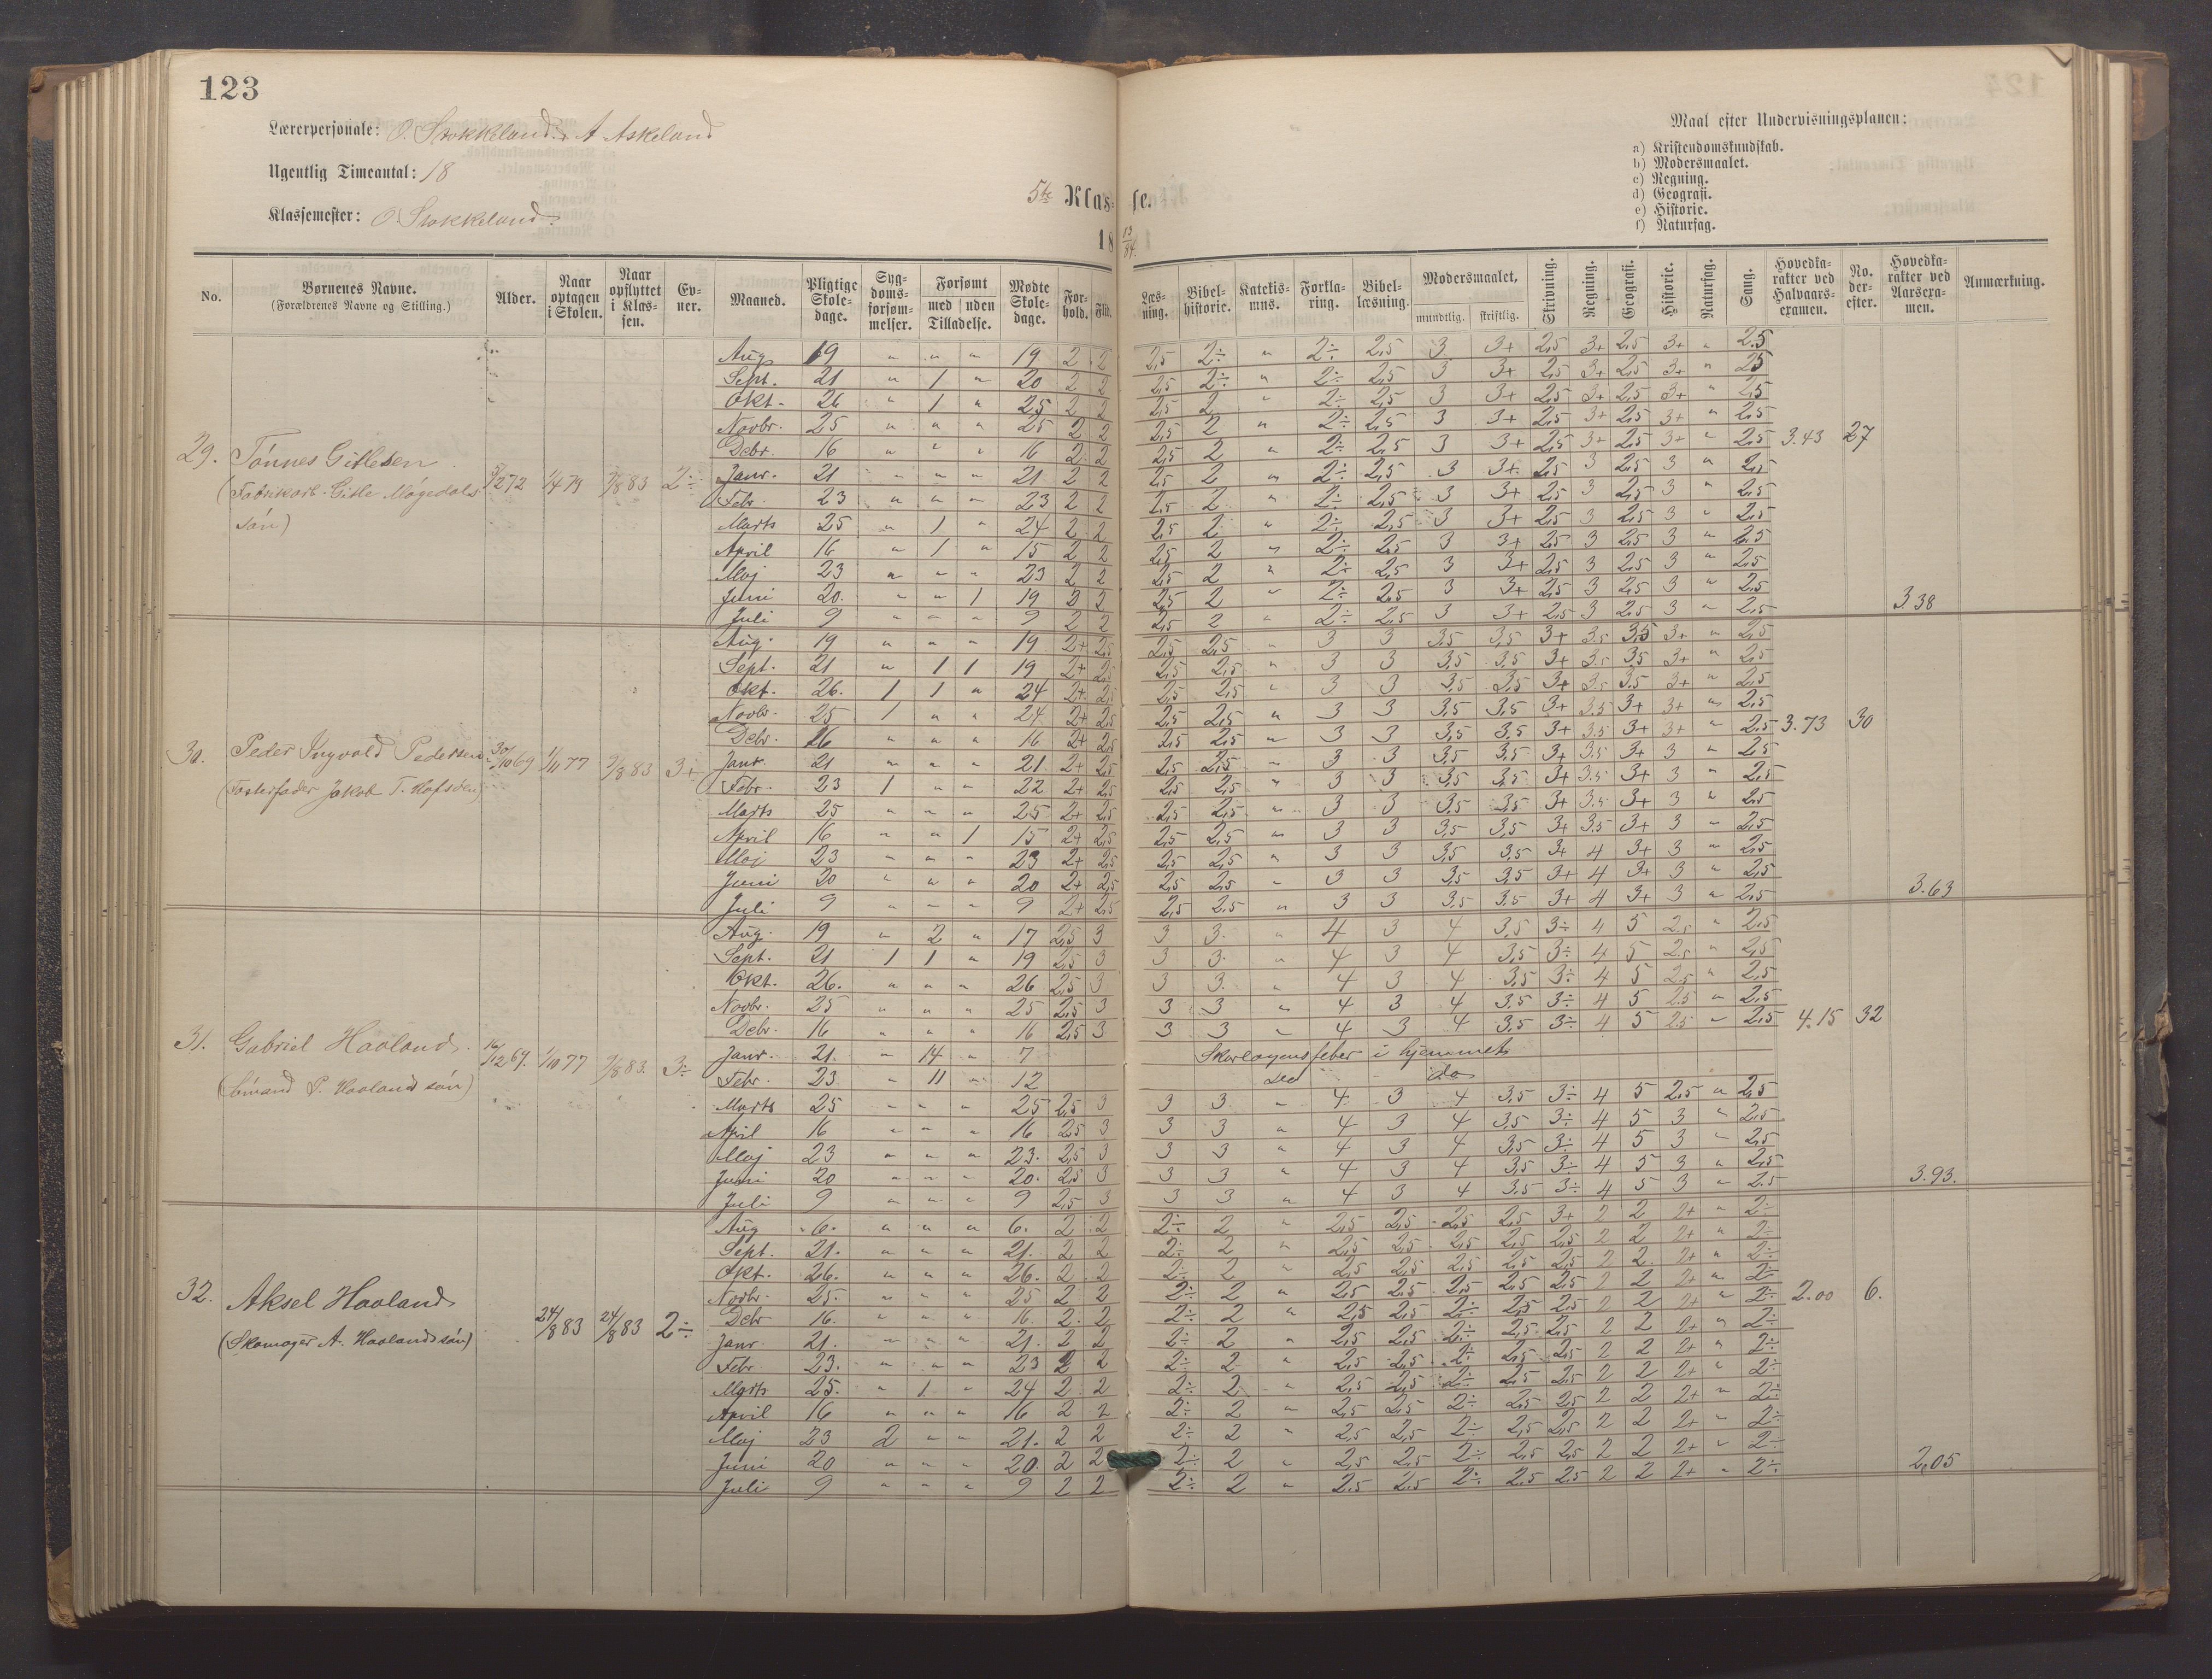 123
Lærerpersonale: O. Stokkeland. A Askeland
Ugentlig Timeantal: 18
Klassemester: O Stokkeland
5te Klasse.
1883/84.
Maal efter Undervisningsplanen:
a) Kristendomskundskab.
b) Modersmaalet.
c) Regning.
d) Geografi.
e) Historie.
f) Naturfag.
No. Børnenes Navne. (Forældrenes Navne og Stilling.) Alder. Naar optagen i Skolen. Naar opflyttet i Klassen. Evner. Maaned. Pligtige Skoledage. Sygdomsforsømmelser. Forsømt med uden Tilladelse. Mødte Skoledage. Forhold. Flid. Læsning. Bibelhistorie. Katekismus. Forklaring. Bibellæsning. Modersmaalet, mundtlig. skriftlig. Skrivning. Regning. Geografi. Historie. Naturfag. Sang. Hovedkarakter ved Halvaarsexamen. No. derefter. Hovedkarakter ved Aarsexamen. Anmærkning.
29. Tønnes Gitlesen
(Fabrikarb. Gitle Møgedals søn)
2÷
Aug. 19 " " " 19 2 2 2,5 2÷ " 2÷ 2,5 3 3+ 2,5 3+ 2,5 3+ " 2.5
Sept. 21 " 1 " 20 2 2 2,5 2÷ " 2÷ 2,5 3 3+ 2,5 3+ 2,5 3+ " 2,5
Okt. 26 " 1 " 25 2 2 2,5 2 " 2÷ 2,5 3 3+ 2,5 3+ 2,5 3+ " 2,5
Novbr. 25 " " " 25 2 2 2,5 2 " 2÷ 2,5 3 3+ 2,5 3+ 2,5 3+ " 2,5
Debr. 16 " " " 16 2 2 2,5 2 " 2÷ 2,5 3 3+ 2,5 3+ 2,5 3+ " 2,5 3.43 27
Janr. 21 " " " 21 2 2 2,5 2 " 2÷ 2,5 3 3+ 2,5 3 2,5 3 " 2,5
Febr. 23 " " " 23 2 2 2,5 2 " 2÷ 2,5 3 3+ 2,5 3 2,5 3 " 2,5
Marts 25 " 1 " 24 2 2 2,5 2 " 2÷ 2,5 3 3+ 2,5 3 2,5 3 " 2,5
April 16 " 1 " 15 2 2 2,5 2 " 2÷ 2,5 3 3+ 2,5 3 2,5 3 " 2,5
Maj 23 " " " 23 2 2 2,5 2 " 2÷ 2,5 3 3+ 2,5 3 2,5 3 " 2,5
Juni 20. " " 1 19 2 2 2,5 2 " 2÷ 2,5 3 3+ 2,5 3 2,5 3 " 2,5
Juli 9 " " " 9 2 2 2,5 2 " 2÷ 2,5 3 3+ 2,5 3 2,5 3 " 2,5 3.38
30. Peder Ingvald Pedersen 30/10 69 1/11 77 2/8 83 3+
(Fosterfader Jakob T. Hafsøen)
Aug. 19 " " " 19 2+ 2,5 2,5 2,5 " 3 3 3,5 3,5 3+ 3.5 3,5 3+ " 2,5
Sept. 21 " 1 1 19 2+ 2,5 2,5 2,5 " 3 3 3,5 3,5 3+ 3.5 3,5 3+ " 2,5
Okt. 26. 1 1 " 24 2+ 2,5 2,5 2,5 " 3 3 3,5 3,5 3+ 3.5 3,5 3+ " 2,5
Novbr. 25 1 " " 24 2+ 2,5 2,5 2,5 " 3 3 3,5 3,5 3+ 3.5 3+ 3+ " 2,5
Debr. 16 " " " 16 2+ 2,5 2,5 2,5 " 3 3 3,5 3,5 3+ 3.5 3+ 3+ " 2.5 3.73 30
Janr. 21 " " " 21 2+ 2,5 2,5 2,5 " 3 3 3,5 3,5 3+ 3.5 3+ 3 " 2,5
Febr. 23 1 " " 22 2+ 2,5 2,5 2,5 " 3 3 3,5 3,5 3+ 3.5 3+ 3 " 2,5
Marts 25 " " " 25 2+ 2,5 2,5 2,5 " 3 3 3,5 3,5 3+ 3.5 3+ 3 " 2,5
April 16 " " 1 15 2+ 2,5 2,5 2,5 " 3 3 3,5 3,5 3+ 3.5 3+ 3 " 2,5
Maj 23 " " " 23 2+ 2,5 2,5 2,5 " 3 3 3,5 3,5 3+ 4 3+ 3 " 2,5
Juni 20 " " " 20 2+ 2,5 2,5 2,5 " 3 3 3,5 3,5 3+ 4 3+ 3 " 2,5
Juli 9 " " " 9 2+ 2,5 2,5 2,5 " 3 3 3,5 3,5 3+ 4 3+ 3 " 2,5 3.63
31. Gabriel Haaland. 16/12 69. 1/10 77 2/8 83. 3÷
(P. Haalands søn)
Aug. 19 " 2 " 17 2,5 3 3 3. " 4 3 4 3,5 3÷ 4 5 2.5 " 2,5
Sept. 21 1 1 " 19 2,5 3 3 3. " 4 3 4 3,5 3÷ 4 5 2.5 " 2,5
Okt. 26. " " " 26 2,5 3 3 3. " 4 3 4 3,5 3÷ 4 5 2.5 " 2,5
Novbr. 25 " " " 25 2,5 3 3 3 " 4 3 4 3,5 3÷ 4 5 2.5 " 2,5
Debr. 16 " " " 16 2,5 3 3 3 " 4 3 4 3,5 3÷ 4 5 2.5 " 2,5 4.15 32
Janr. 21. " 14 " 7 Skarlagensfeber i hjemmet
Febr. 23. " 11 " 12 do do
Marts 25 " " " 25 2,5 3 3 3 " 4 3 4 3,5 3÷ 4 5 2,5 " 2,5
April 16 " " " 16 2,5 3 3 3 " 4 3 4 3,5 3÷ 4 5 3 " 2,5
Maj 23 " " " 23. 2,5 3 3 3 " 4 3 4 3,5 3÷ 4 5 3 " 2,5
Juni 20 " " " 20. 2,5 3 3 3 " 4 3 4 3,5 3÷ 4 5 3 " 2,5
Juli 9 " " " 9 2,5 3 3 3 " 4 3 4 3,5 3÷ 4 5 3 " 2.5 3.93.
32. Aksel Haaland 24/8 83 24/8 83 2÷
(Skomager A. Haalands søn)
Aug 6. " " " 6. 2 2 2÷ 2 " 2,5 2,5 2,5 2,5 3+ 2 2 2+ " 2÷
Sept. 21. " " " 21. 2 2 2÷ 2 " 2,5 2,5 2,5 2,5 2,5 2 2 2+ " 2÷
Okt. 26. " " " 26. 2 2 2÷ 2 " 2,5 2,5 2,5 2,5 2,5 2 2 2+ " 2÷
Novbr. 25. " " " 25 2 2 2÷ 2 " 2,5 2,5 2,5 2,5 2,5 2 2 2+ " 2÷
Debr 16. " " " 16. 2 2 2÷ 2 " 2,5 2,5 2÷ 2,5 2,5 2 2 2+ " 2÷ 2.00 6.
Janr. 21. " " " 21. 2 2 2÷ 2 " 2,5 2,5 2÷ 2,5 2,5 2 2 2+ " 2÷
Febr. 23. " " " 23 2 2 2÷ 2 " 2,5 2,5 2÷ 2,5 2,5 2 2 2+ " 2÷
Marts 25. " 1. " 24 2 2 2÷ 2 " 2,5 2,5 2÷ 2,5 2,5 2 2 2+ " 2÷
April 16 " " " 16 2 2 2÷ 2 " 2,5 2,5 2÷ 2,5 2,5 2 2 2+ " 2÷
Maj 23 2 " " 21. 2 2 2÷ 2 " 2,5 2,5 2÷ 2,5 2,5 2 2 2+ " 2÷
Juni 20 " " " 20. 2 2 2÷ 2 " 2,5 2,5 2÷ 2,5 2,5 2 2 2+ " 2÷
Juli 9 " " " 9 2 2 2÷ 2 " 2.5 2,5 2÷ 2.5 2.5 2 2 2+ " 2÷ 2,05